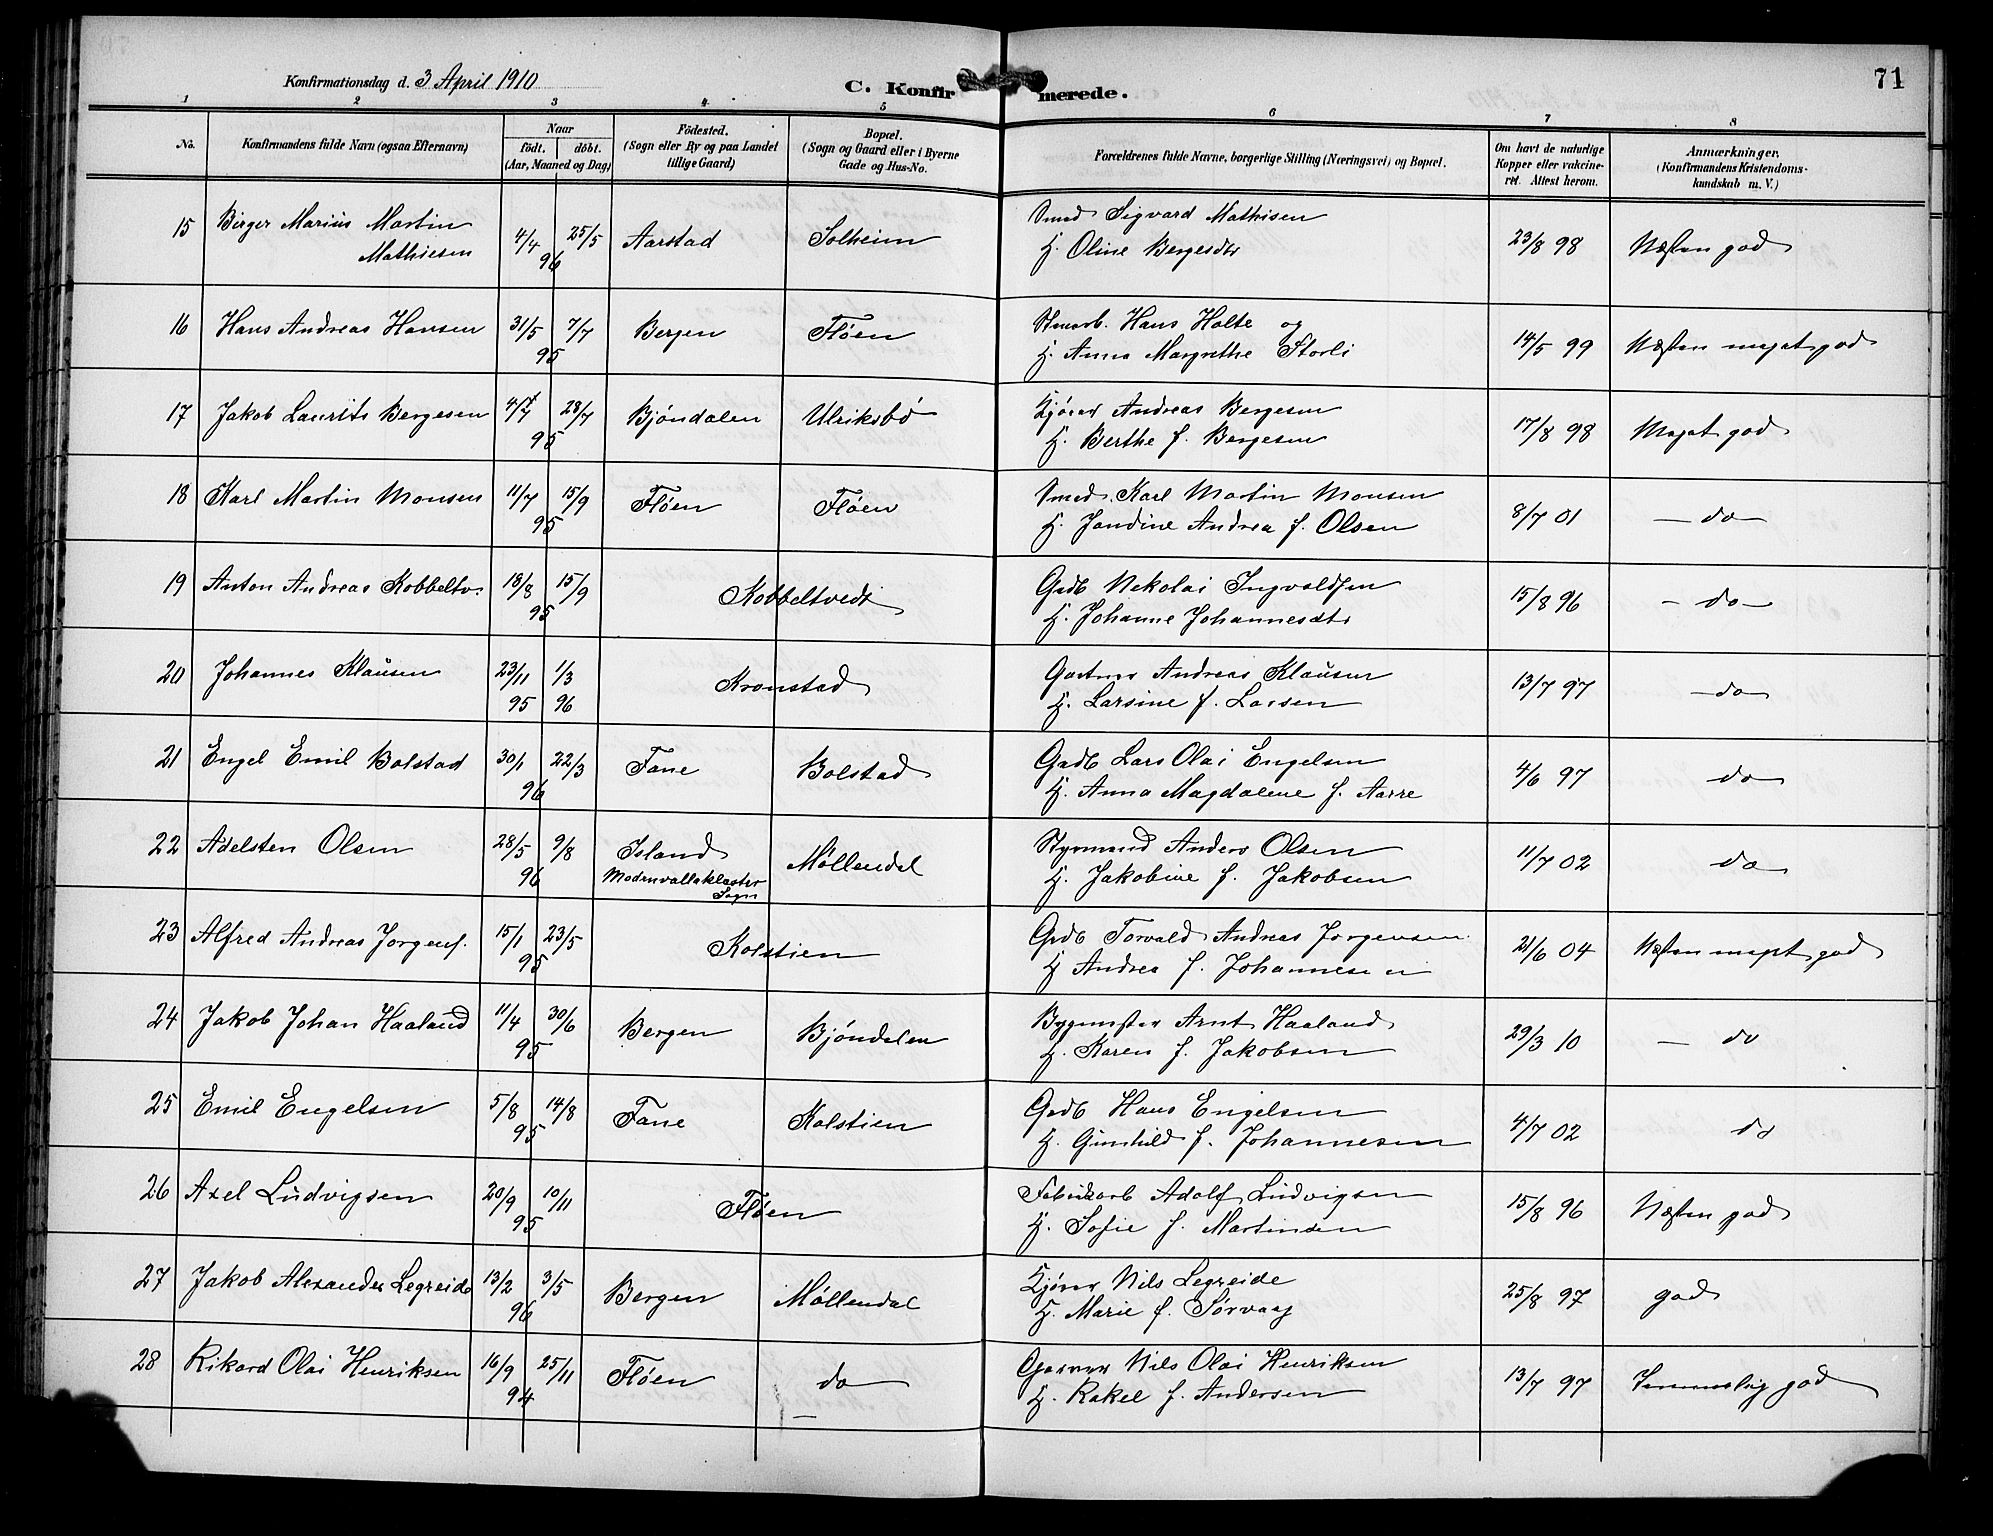 Konfirmationsdag d. 3 April 1910
C. Konfirmerede.
71
1 2 3 4 5 6 7 8
No.
Konfirmandens fulde Navn (ogsaa Efternavn)
Naar
födt. döbt.
(Aar, Maaned og Dag)
Födested.
(Sogn eller By og paa Landet
tillige Gaard)
Bopæl.
(Sogn og Gaard eller i Byerne
Gade og Hus-No.
Forældrenes fulde Navne, borgerlige Stilling (Næringsvei) og Bopæl.
Om havt de naturlige
Kopper eller vakcine-
ret. Attest herom.
Anmærkninger.
(Konfirmandens Kristendoms-
kundskab m. V.)
15 Birger Marius Martin 4/4 25/5 Aarstad Solheim Smed Sigvard Mathisen 23/8 98 Næsten god
Mathiesen 96 H. Oline Bergesdtr
16 Hans Andreas Hansen 31/5 7/7 Bergen Flöen Stenarb. Hans Holte og 14/5 99 Næsten meget god
95 H. Anna Margrethe Storli
17 Jakob Laurits Bergesen 4/7 28/7 Bjöndalen Ulriksbö Kjörer Andreas Bergesen 17/8 98 Meget god
95 H. Berthe f. Bergesen
18 Karl Martin Monsen 11/7 15/9 Flöen Flöen Smed. Karl Martin Monsen 8/7 01 - do -
95 H. Jondine Andrea f. Olsen
19 Anton Andreas Kobbeltv. 18/8 15/9 Kobbeltvedt Grdb Nekolai Ingvaldsen 15/8 96 - do -
95 H. Johanne Johannesdtr
20 Johannes Klausen 23/11 1/3 Kronstad Gartner Andreas Klausen 13/7 97 - do
95 96 H. Larsine f. Larsen
21 Engel Emil Bolstad 30/1 22/3 Fane Bolstad Gadb Lars Olai Engelsen 4/6 97 do
96 H. Anna Magdalene f. Aarre
22 Adelsten Olsen 28/5 9/8 Island Möllendal Styrmand Anders Olsen 11/7 02 do
96 Modruvallaklaster Sogn H. Jakobine f. Jakobsen
23 Alfred Andreas Jorgens. 15/1 23/5 Kolstien Grdb Torvald Andreas Jorgensen 21/6 04 Næsten meget god
95 H Andrea f. Johannesen
24 Jakob Johan Haaland 11/4 30/6 Bergen Bjöndalen Bygmester Arnt Haaland 29/3 10 - do
95 H. Karen f. Jakobsen
25 Emil Engelsen 5/8 14/8 Fane Kolstien Grdb Hans Engelsen 4/7 02 do
95 H. Gunhild f. Johannesen
26 Axel Ludvigsen 20/9 10/11 Flöen Fabrikarb Adolf Ludvigsen 15/8 96 Næsten god
95 H. Sofie f. Martinsen
27 Jakob Alexander Legreide 13/2 3/5 Bergen Möllendal Kjörer Nils Legreide 25/8 97 god
96 H. Marie f. Sörvaag
28 Rikard Olai Henriksen 16/9 25/11 Flöen do Garver Nils Olai Henriksen 13/7 97 Temmelig god
94 H. Rakel f. Andersen